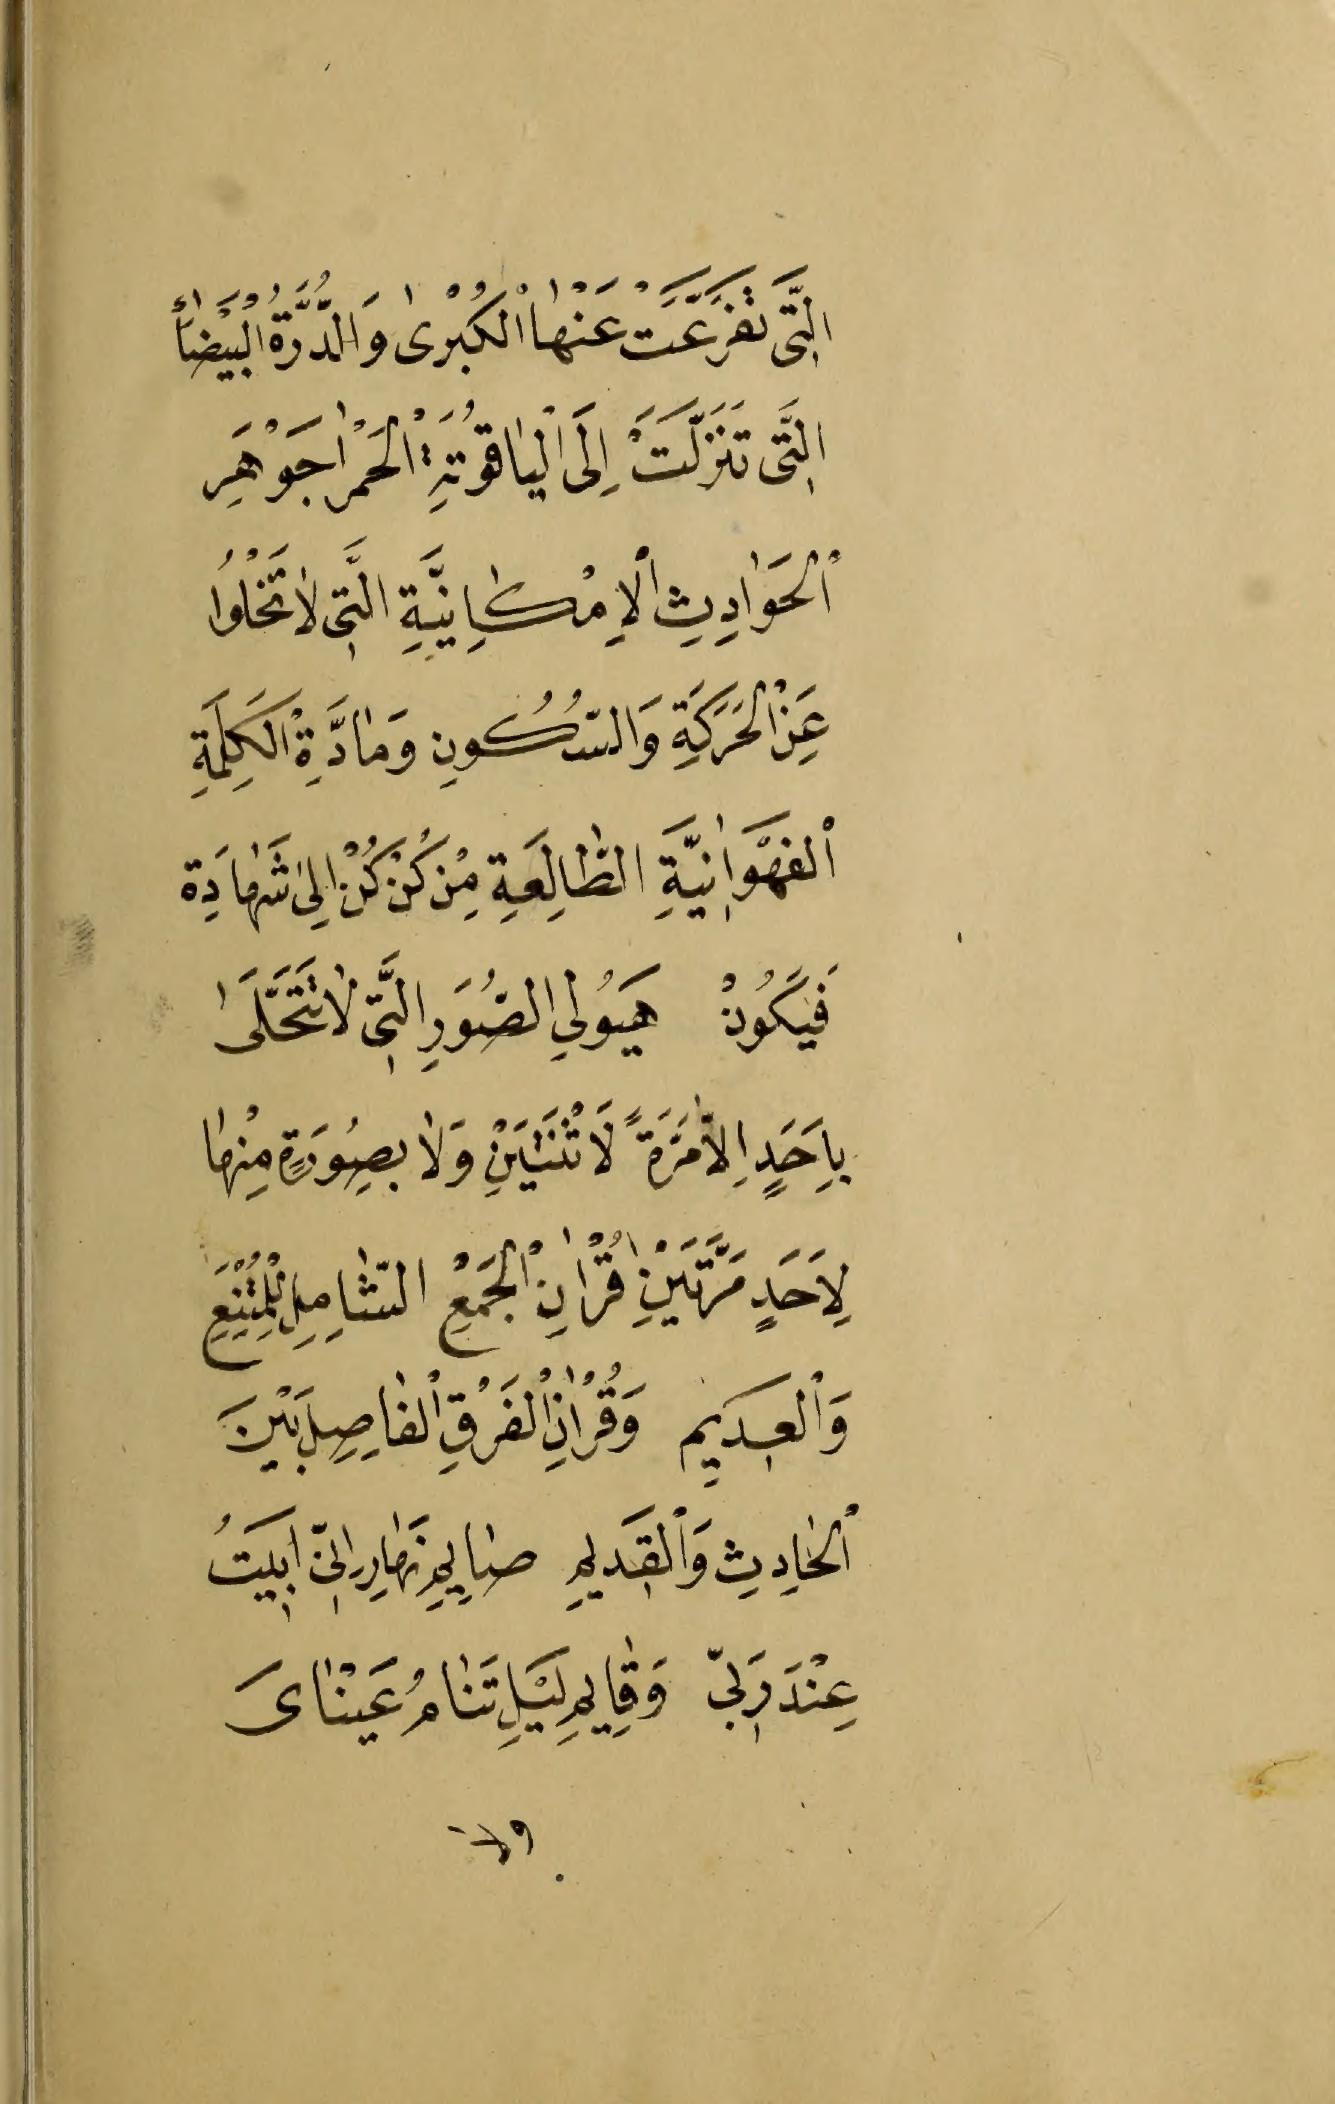 الَّتِّى تَفَرَّعَّتَ عَنْهٰا الْكُبْرىٰ وَالدُّرَّةُ الْبَيْضٰاءُ
الَّتِّى تَنَزَّلَتَ اِلَى الْيٰاقُوتَةِ الْحَمْرٰا جَوْهَرِ
الْحَوٰادِثِ الْاِمْكٰانِيَّةِ الَّتِى لٰا تَخْلُوا
عَنِ الْحَرَكَةِ وَالسُّكُونِ وَمٰادَّةِ الْكَلِمَةِ
الْفَهْوٰانِيَّةِ الطّٰالِعَةِ مِنْ كُنْ كُنْ اِلىٰ شَهٰادَةِ
فَيَكُونْ هَيُولِي الصُّوَرِ الَّتِّى لٰا تَتَحَلَّىٰ
بِاَحَدٍ اِلّٰا مَرَّةً لَا ثْنَتَيْنِ وَلٰا بِصُورَةٍ مِنْهٰا
لِاَحَدٍ مَرَّتَيْنِ قُرْاٰنِ الْجَمْعِ الشّٰامِلِ لِلْمُتْنِعِ
وَالْعَدِيمِ وَقُرْاٰنِ الْفَرْقِ الْفٰاصِلِ بَيْنَ
الْحٰادِثِ وَالْقَدِيمِ صٰايِمِ نَهٰارِ اِنّى اَبِيتُ
عِنْدَ رَبِّى وَقٰايِمِ لَيْلِ تَنٰامُ عَيْنٰاىَ
ولا